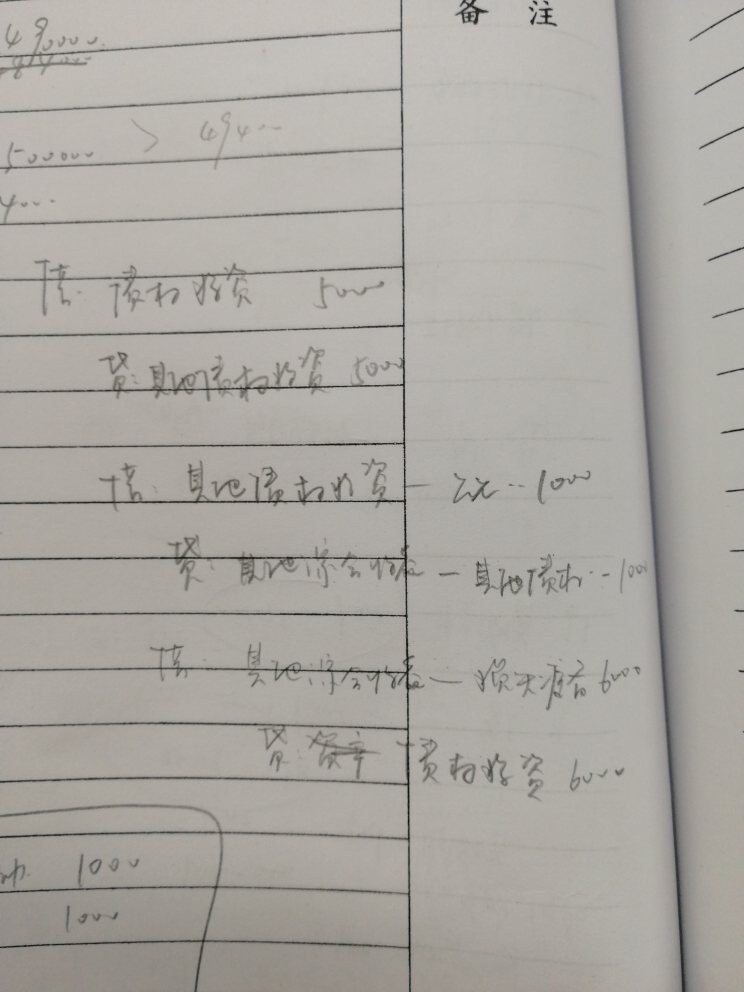 备 注
490000
500000 > 494000
4000
借: 债权投资 5000
贷: 其他债权投资 5000
借: 其他债权投资 — 公允.. 1000
贷: 其他综合收益 — 其他债权.. 1000
借: 其他综合收益 — 损失准备 6000
贷: 债权投资 6000
1000
1000